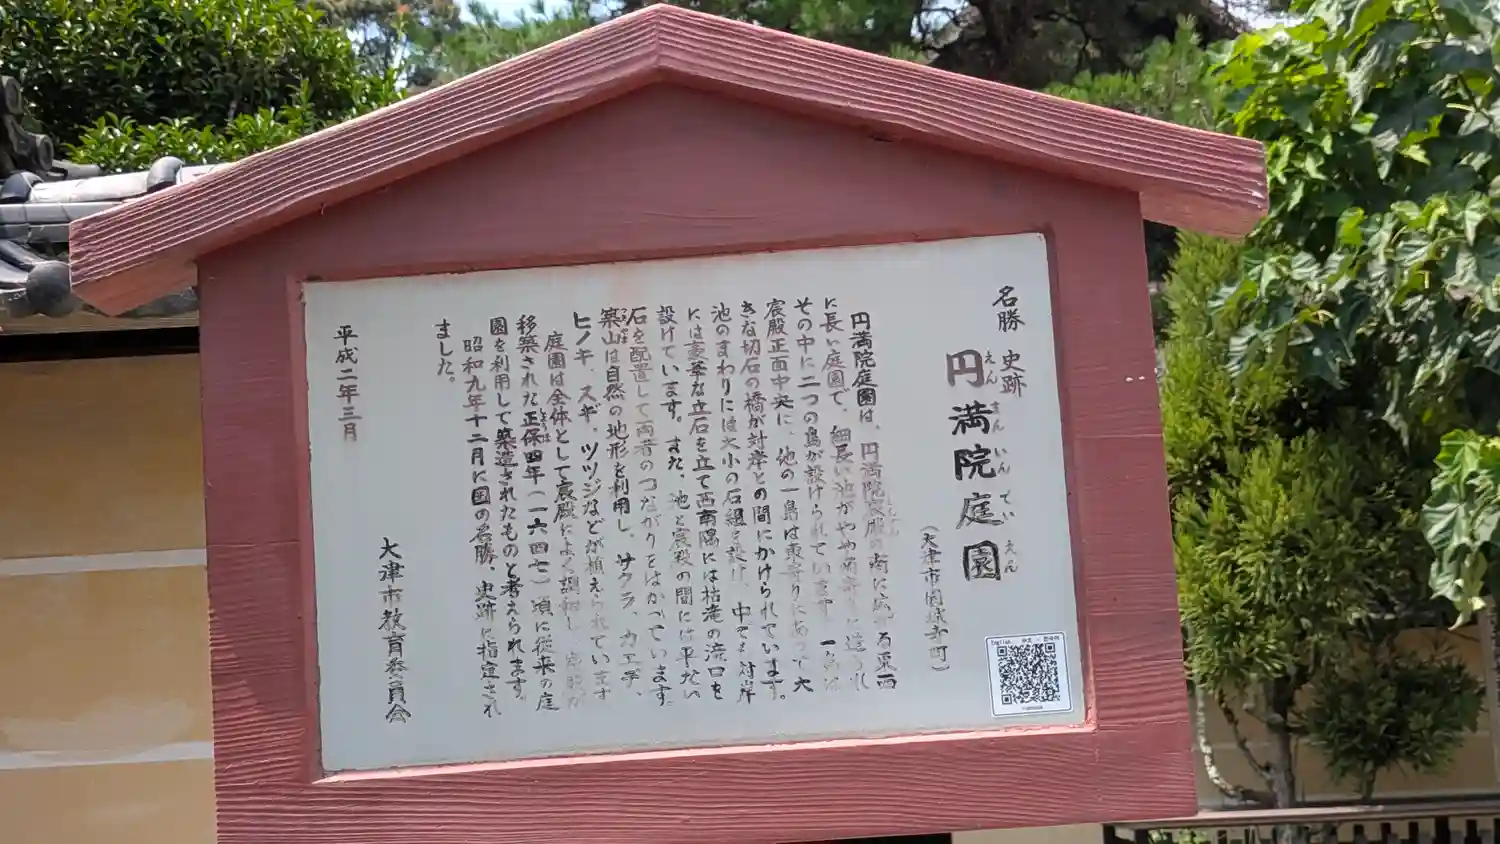 名勝 史跡
円満院庭園
えん まん いん てい えん
(大津市園城寺町)
円満院庭園は、円満院宸殿の南に広がる東西
に長い庭園で、細長い池がやや南寄りに造られ
その中に二つの島が設けられています。一島は
宸殿正面中央に、他の一島は東寄りにあって大
きな切石の橋が対岸との間にかけられています。
池のまわりには大小の石組を設け、中でも対岸
には豪華な立石を立て西南隅には枯滝の流口を
設けています。また、池と宸殿の間には平たい
石を配置して両者のつながりをはかっています。
築山は自然の地形を利用し、サクラ、カエデ、
ヒノキ、スギ、ツツジなどが植えられています
庭園は全体として宸殿によく調和し、宸殿が
移築された正保四年(一六四七)頃に従来の庭
園を利用して築造されたものと考えられます。
昭和九年十二月に国の名勝、史跡に指定され
ました。
平成二年三月
大津市教育委員会
English 中文 한국어